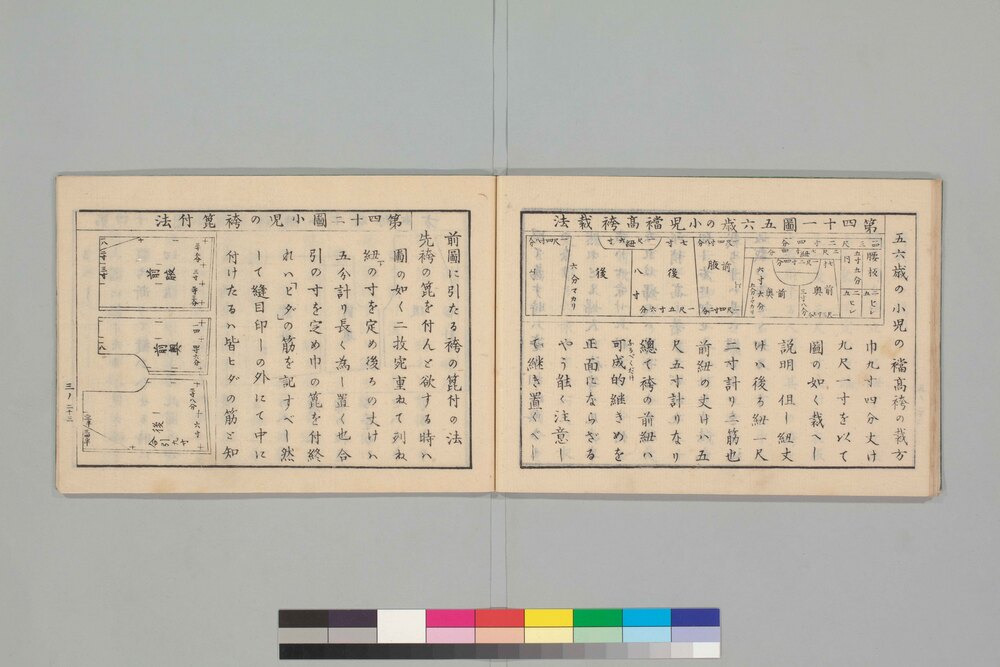 第四十一圖五六歳の小児襠髙袴裁法
五六歳の小児の襠髙袴の裁方
巾九寸四分丈け
九尺一寸を以て
圖の如く裁へし
説明 但し紐丈
けハ後ろ紐一尺
二寸計り二筋也
前紐の丈けハ五
尺五寸計りなり
總て袴の前紐ハ
可成的継きめを
正面にならざる
やう能く注意し
て継き置くべし
腰板
前
奥
前
奥
前
股
後
後
八寸
六寸六分
第四十二圖小児の袴箆付法
前圖に引たる袴の箆付の法
先袴の箆を付んと欲する時ハ
圖の如く二枚宛重ねて列ね
紐下の寸を定め後ろの丈けハ
五分計り長く為し置く也合
引の寸を定め巾の箆を付終
れハ「ヒダ」の筋を記すべし然
して縫目印しの外にて中に
付けたるハ皆ヒダの筋と知
前股
前奥
後
三ノ二十三